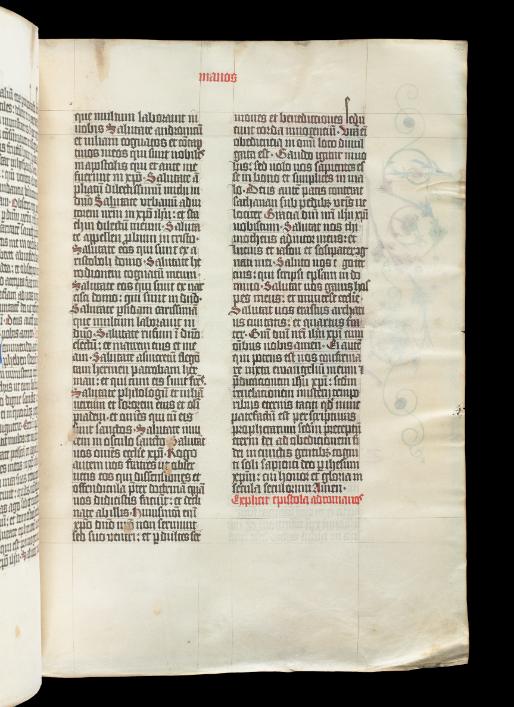 manos
que multum laborauit in
uobis Salutate andronicū
et iuliam cognatos et ꝯcap
tiuos meos qui sunt nobiles
in apostolis qui et ante me
fuerunt in xpō Salutate
pliatū dilectissimū michi in
dn̄o Salutate urbanū adiu
torem nr̄m in xpō ihū et sta
chin dilectū meum Saluta
te appellen ꝓbum in cristo
Salutate eos qui sunt ex a
ristoboli domo Salutate he
rodionem cognatū meum
Salutate eos qui sunt ex nar
cisci domo qui sunt in dn̄o
Salutate ꝑsidam carissimā
que multum laborauit in
dn̄o Salutate rufum
electū et matrem eius et me
am Salutate asincretū flego
tam hermen patrobam her
man et qui cum eis sunt frēs
Salutate philologū et iuliā
nereum et sororem eius et oli
piadem et omēs qui cū eis
sunt sanctos Salutate inui
cem in osculo sancto Salutāt
uos omēs ecclīe xpī Rogo
autem uos fratres ut obser
uetis eos qui dissensiones et
offendicula preter doctrinā quā
uos didicistis faciūt et decli
nate ab illis Huiusmōi enī
xpō dn̄o nō non seruiunt
sed suo uentri et ꝑ dulces ser
mones et benedictiones sedu
cunt corda innocentiū Vr̄a enī
obedientia in omī loco diuul
gata est Gaudeo igitur in uo
bis sed uolo uos sapientes es
se in bono et simplices in ma
lo Deus autē pacis conterat
sathanan sub pedibꝫ vr̄is ue
lociter Gracia dn̄i nr̄i ihū xpī
uobiscum Salutat uos thi
motheus adiutor meus et
lucius et iason et sosipater cog
nati mei Saluto uos ego terti
us qui scripsi epistolam in do
mino Salutat uos gaius hos
pes meus et uniuerse ecclīe
Salutat uos erastus archari
us ciuitatis et quartus fra
ter Grā dn̄i nr̄i ihū xpī cum
omībus uobis amen Ei autē
qui potens est uos confirma
re iuxta ewangeliū meum et
p̄dicationem ihū xpī scdm̄
reuelacionem misterii tempo
ribus eternis taciti qd nunc
patefactū est per scripturas
prophetarum scdm̄ preceptū
eterni dei ad obedicionem fi
dei in cunctis gentibꝫ cogniti
soli sapienti deo per ihesum
xpm̄ cui honor et gloria in
secula seculorum Amen
Explicit epistola ad romanos